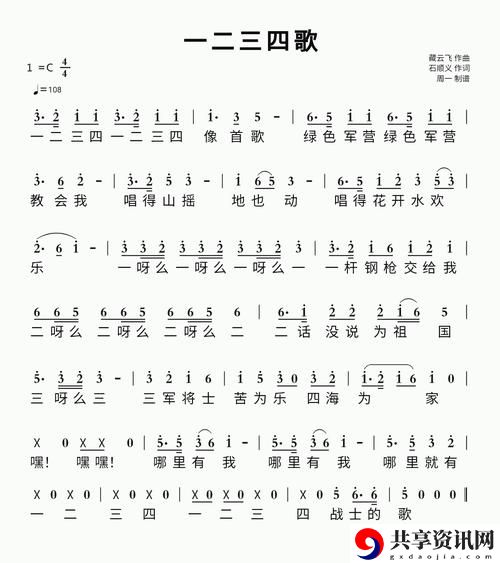 一二三四歌
藏云飞 作曲
1 =C 4/4
石顺义 作词
周一 制谱
♩=108
3· 2 1 1 3· 2 1 1 | 1· 3 5 - | 6· 5 1 1 6· 5 1 1 |
一二三四一二三四 像首歌 绿色军营绿色军营
3· 6 2 - | 3· 2 5 3 - | 1 6 5 3 - | 6· 5 1 3 2 5 3 |
教会我 唱得山摇 地也动 唱得花开水欢
2· 6 1 - | 3 3 2 3 3 2 3 3 2 3 | 1· 1 6 1 2 3 |
乐 一呀么一呀么一呀么一 一杆钢枪交给我
6 6 5 6 6 5 6 6 5 6 | 0 1 2 2 2 1 6 5 |
二呀么二呀么二呀么二 二话没说为祖国
5· 3 3 2 3 - | 3 2 1 6 | 5 3 0 3 2 | 1· 2 1 6 0 |
三呀么三 三军将士 苦为乐四海为 家
X 0 X X 0 | 5· 5 3 6 1 - | 5· 5 3 6 1 - | 5· 5 3 0 3 |
嘿! 嘿嘿! 哪里有我 哪里有我 哪里就有
X 0 X 0 | X 0 X 0 | X 0 X 0 | X 0 5 6· 6 | 5 0 0 0 ‖
一 二 三 四 一 二 三 四 战士的 歌
共享资讯网
gxdaojia.com